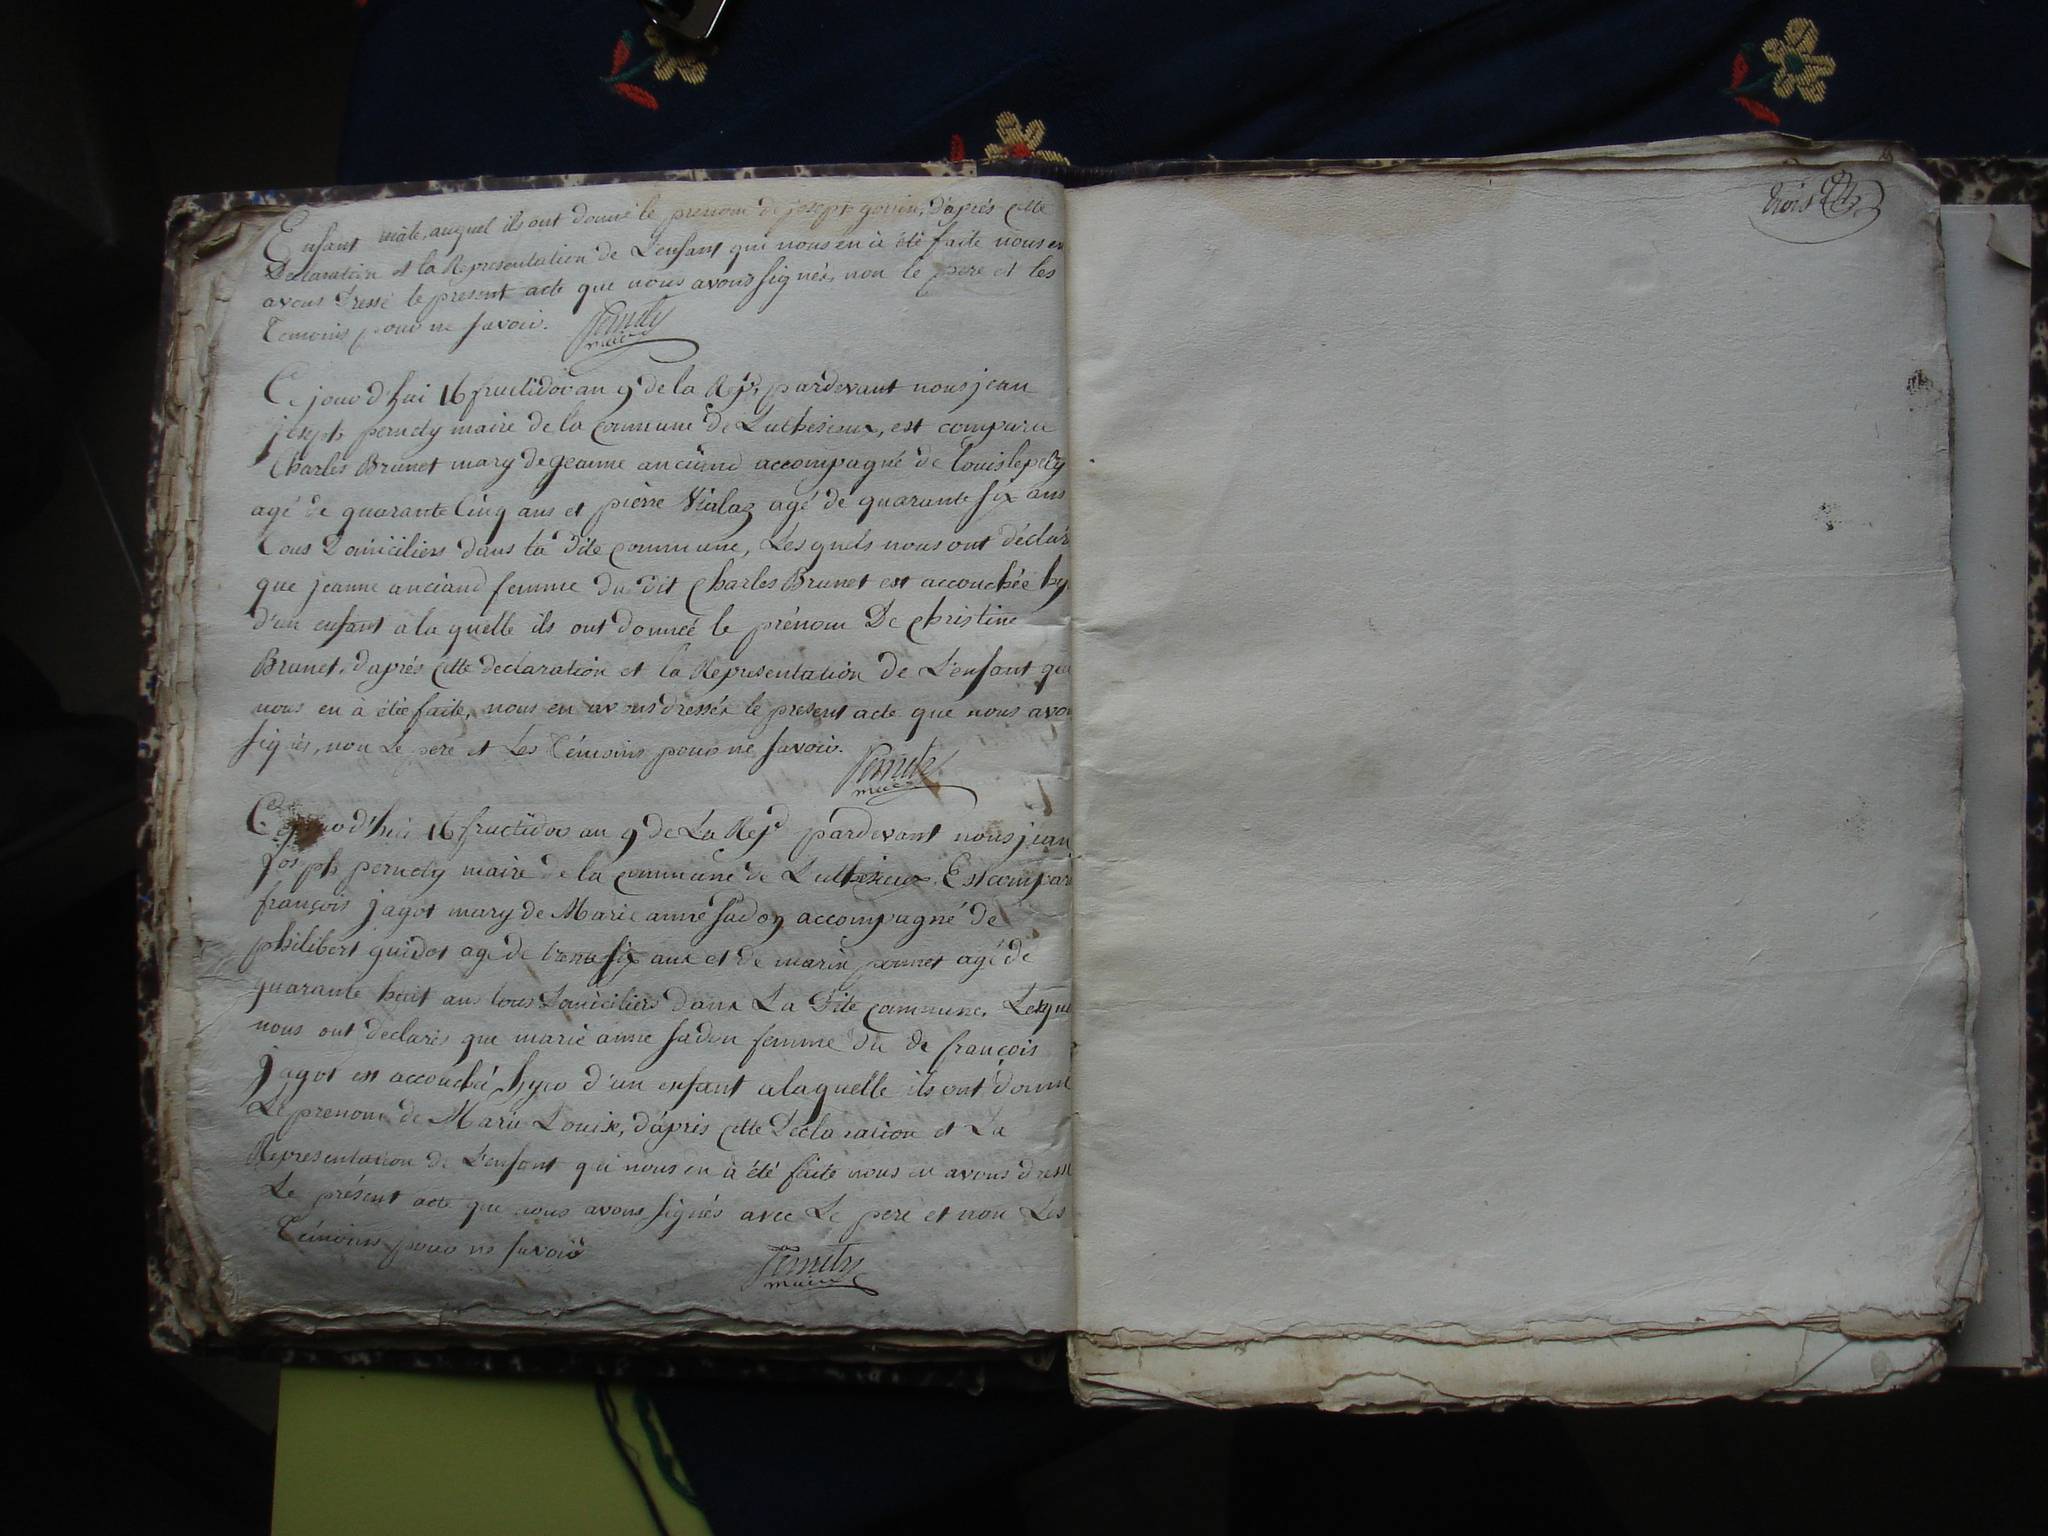 Enfant mâle, auquel ils ont donné le prenom de joseph gonin, d'aprés cette
Declaration et la Representation de L'enfant qui nous en à été faite nous en
avons dressé le present acte que nous avons signés, non le pere et les
Temoins pour ne savoir. Pernety
maire
Ce jourd'hui 16 fructidor an 9 de la Rep. pardevant nous jean
joseph pernety maire de la commune de Luthesieux, est comparu
Charles Brunet mary de jeanne anciand accompagné de Louis
agé de quarante Cinq ans et pierre Vialaz agé de quarante six ans
Tous Domiciliers dans la dite commune, Lesquels nous ont déclar
que jeanne anciand femme du dit Charles Brunet est accouchée hy
d'un enfant a la quelle ils ont donnéé le prénom De Christine
Brunet, d'aprés cette declaration et la Representation de L'enfant qui
nous en à étée faite, nous en avons dressés le present acte que nous avon
signés, non Le pere et Les Témoins pour ne savoir. Pernety
maire
Ce jourd'hui 16 fructidor an 9 de La Rep. pardevant nous jean
joseph pernety maire de la commune de Luthesieux, Est compar
françois jagot mary de Marie anne accompagné de
philibert guidot agé de trente six ans et de marin ponnet agé de
quarante huit ans tous Domiciliers dans La dite commune, Lesque
nous ont declarés que marie anne femme du de françois
jagot est accouché hyer d'un enfant a laquelle ils ont donné
Le prenom de Marie Louise, d'aprés cette Declaration et La
Representation de L'enfant qui nous en à été faite nous en avons dressé
Le présent acte que nous avons signés avec Le pere et non Les
Témoins pour ne savoir Pernety
maire
trois